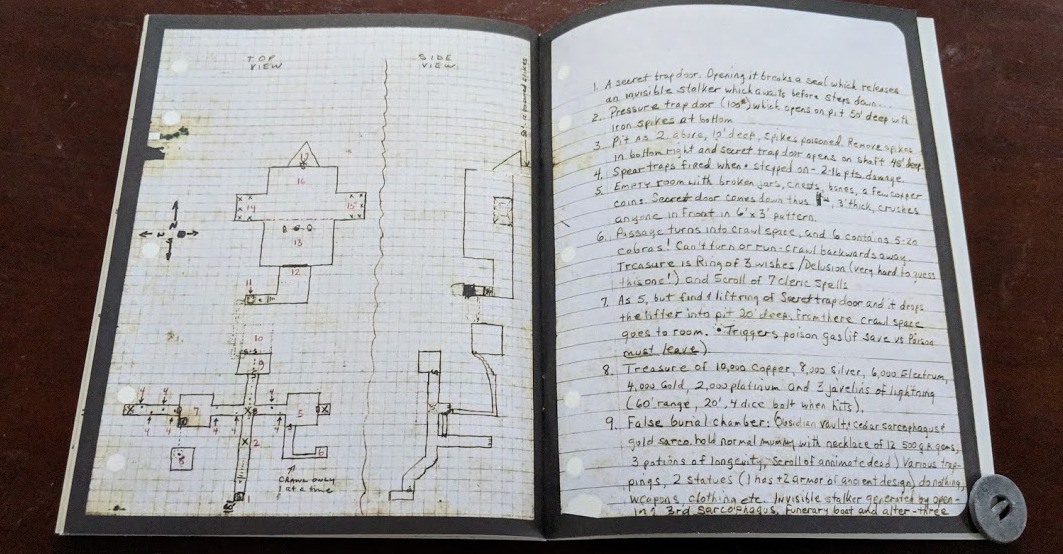 TOP
VIEW
SIDE
VIEW
17
16
14
15
B
13
12
11
10
9
4 4 4
7
5
4 4 4
8
2
6
CRAWL ONLY
1 at a time
1
1. A secret trap door. Opening it breaks a seal which releases
an invisible stalker which awaits before steps down.
2. Pressure trap door (100#) which opens on pit 50' deep with
iron spikes at bottom
3. Pit as 2 above, 10' deep, spikes poisoned. Remove spikes
in bottom right and secret trap door opens on shaft 45' deep.
4. Spear traps fired when • stepped on - 2-16 pts. damage.
5. Empty room with broken jars, chests, bones, a few copper
coins. Secret door comes down thus 3' thick, crushes
anyone in front in 6' x 3' pattern.
6. Passage turns into crawl space, and 6 contains 5-20
cobras! Can't turn or run-crawl backwards away.
Treasure is Ring of 3 wishes/Delusion (very hard to guess
this one!) and Scroll of 7 cleric spells
7. As 5, but find & lift ring of Secret trap door and it drops
the lifter into pit 20' deep, from there crawl space
goes to room. • Triggers poison gas (if save vs Poison
must leave)
8. Treasure of 10,000 Copper, 8,000 Silver, 6,000 Electrum,
4,000 Gold, 2,000 platinum and 3 javelins of lightning
(60' range, 20', 4 dice bolt when hits).
9. False burial chamber: Obsidian vault, cedar sarcophagus &
gold sarco. hold normal mummy with necklace of 12 500 g.p. gems,
3 potions of longevity, Scroll of annimate dead) Various trap-
pings, 2 statues (1 has +2 armor of ancient design) do nothing,
weapons, clothing etc. Invisible stalker generated by open-
ing 3rd sarcophagus, funerary boat and alter-three